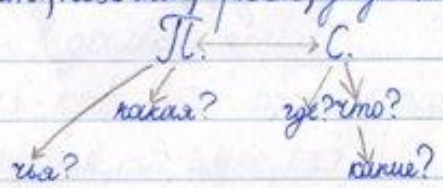 П. С.
какая? где? что?
чья? какие?